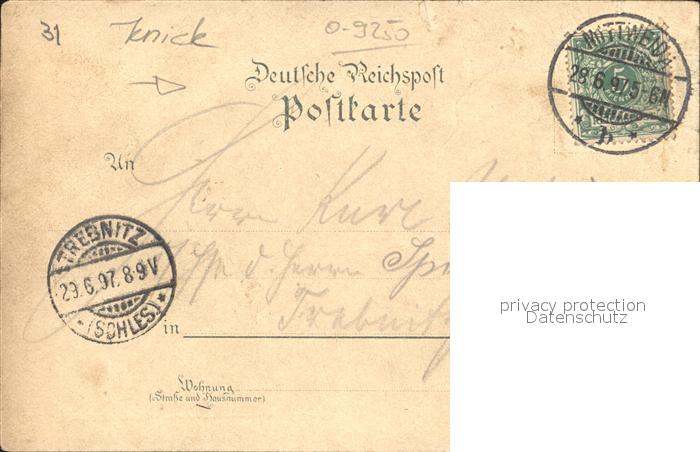 31 Knick 0-9250
MITTWEIDA
28.6.97.5-6N.
* b *
5
Deutsche Reichspost
Postkarte
An
Herrn Karl
d. Herrn
Trebnitz
in
TREBNITZ
29.6.97.8-9V
* (SCHLES) *
Wohnung
(Straße und Hausnummer)
privacy protection
Datenschutz